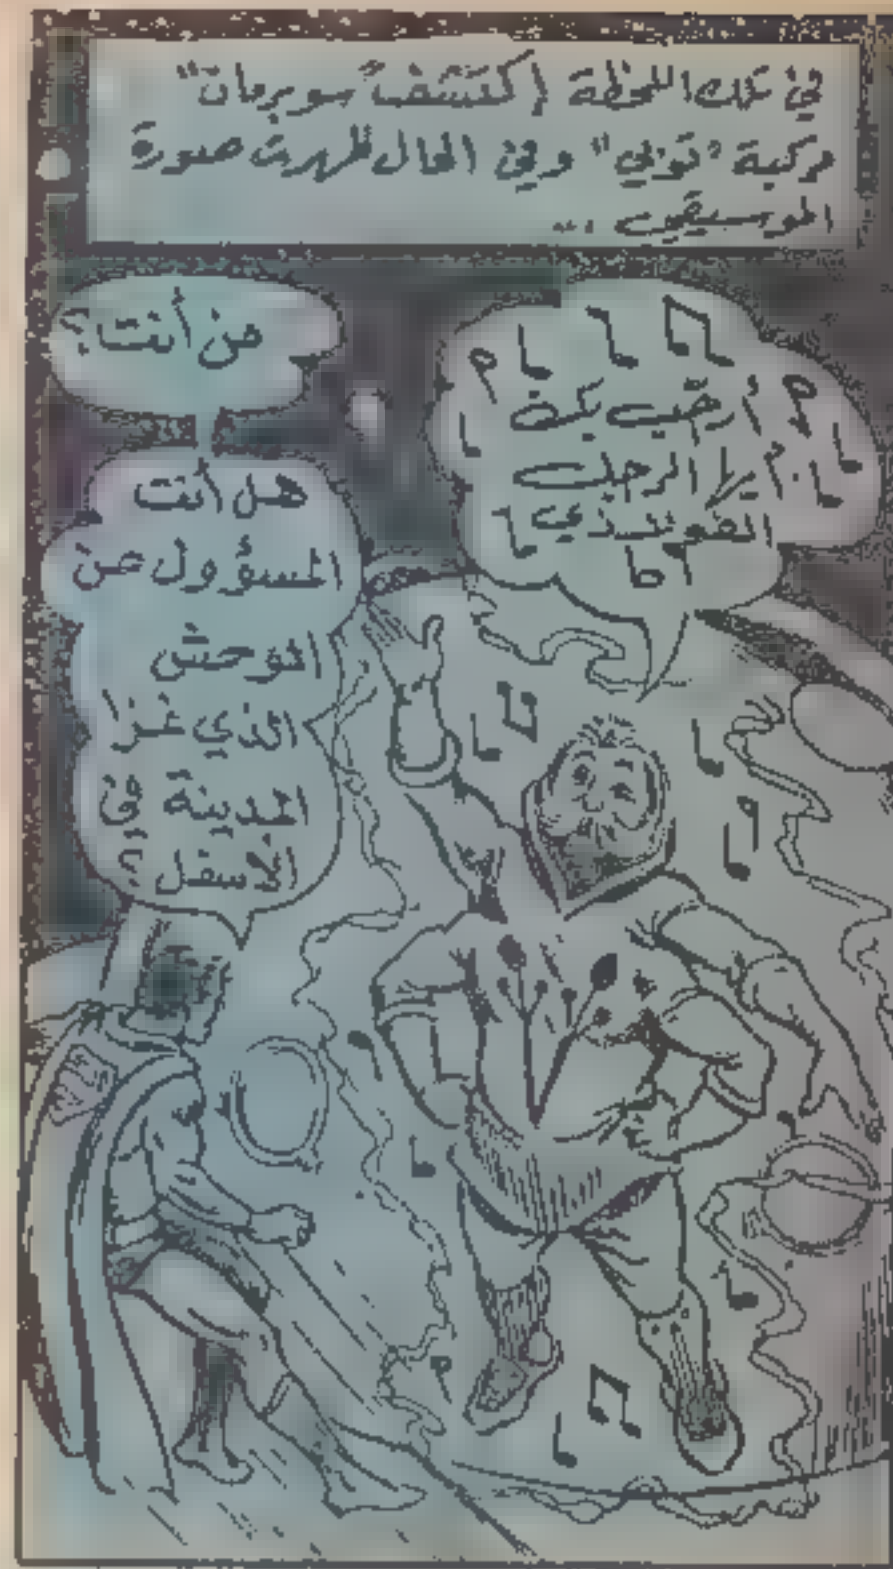 في تلك اللحظة اكتشف "سوبرمان"
مركبة "توني" وفي الحال ظهرت صورة
الموسيقي ...
أرحّب بك
أيها الرجل
الفولاذي
من أنت؟
هل أنت
المسؤول عن
الوحش
الذي غزا
المدينة في
الأسفل؟